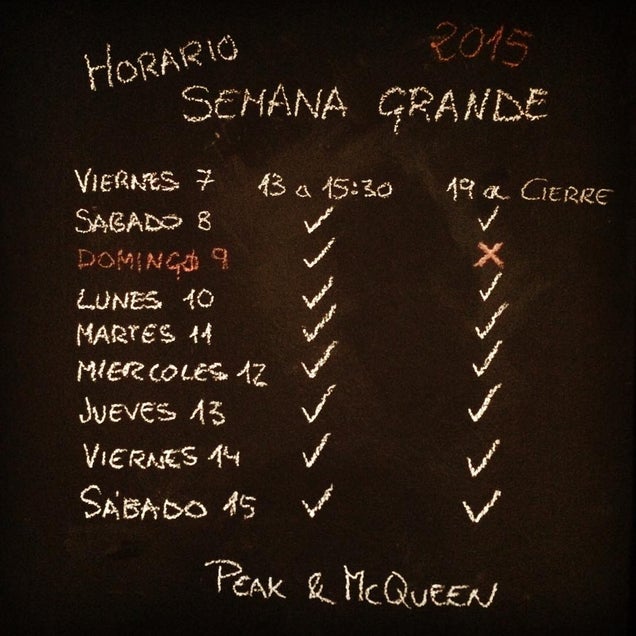 HORARIO 2015
SEMANA GRANDE
VIERNES 7 13 a 15:30 19 a CIERRE
SABADO 8 ✓ ✓
DOMINGO 9 ✓ ✗
LUNES 10 ✓ ✓
MARTES 11 ✓ ✓
MIERCOLES 12 ✓ ✓
JUEVES 13 ✓ ✓
VIERNES 14 ✓ ✓
SÁBADO 15 ✓ ✓
PEAK & McQUEEN